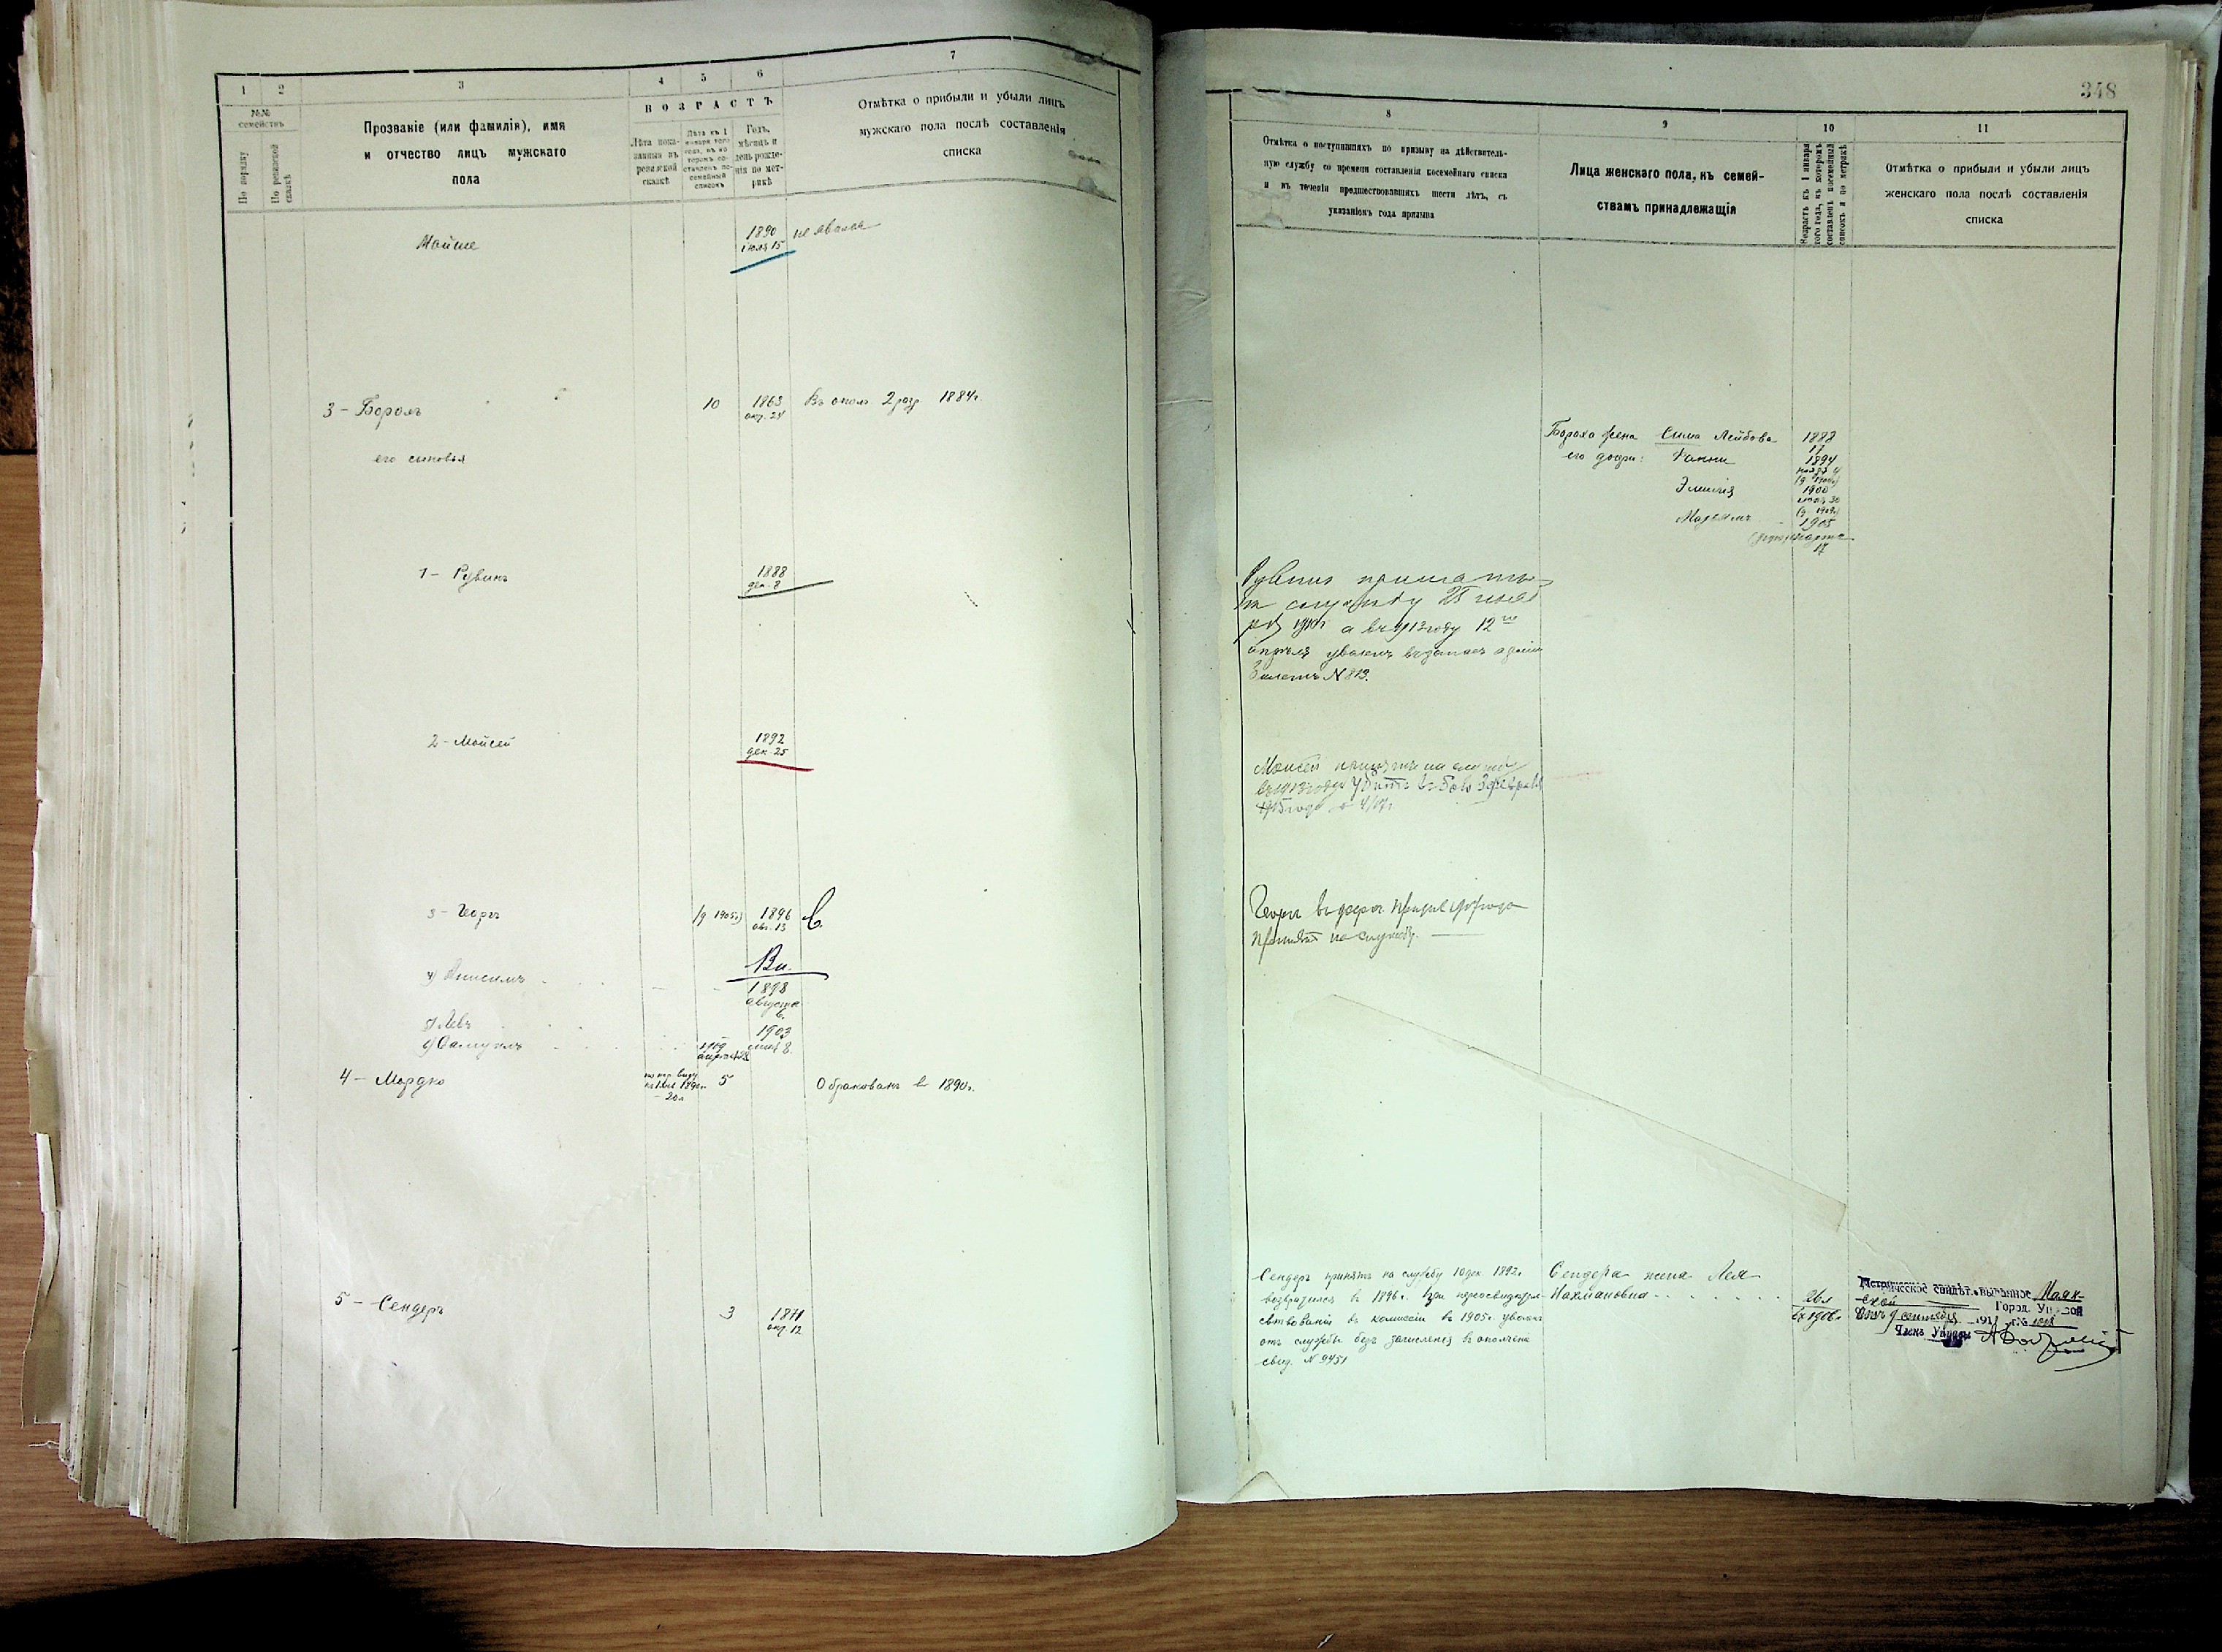 1 2 3 4 5 6 7
№№ семействъ
По порядку
По ревизской сказкѣ
Прозваніе (или фамилія), имя
и отчество лицъ мужскаго
пола
ВОЗРАСТЪ
Лѣта пока-
занныя въ
ревизской
сказкѣ
Лѣта къ 1
января того
года, въ ко
торомъ со-
ставленъ по-
семейный
списокъ
Годъ,
мѣсяцъ и
день рожде-
нія по мет-
рикѣ
Отмѣтка о прибыли и убыли лицъ
мужскаго пола послѣ составленія
списка
Мойше 1890
іюля 15
3 - Борохъ 10 1863 Въ ополч 2 разр 1884г.
окт. 24
его сыновья
1 - Рувинъ 1888
дек. 8
2 - Мойсей 1892
дек. 25
3 - Георг (д 1905г) 1896
авг. 13
4) Анисимъ 1898
августа
6.
5) Левъ 1903
6) Самуилъ 1909 мая 8.
4 - Мордко 5 Обракованъ в 1890г.
5 - Сендеръ 3 1871
окт 12
348
8 9 10 11
Отмѣтка о поступившихъ по призыву на дѣйствитель-
ную службу со времени составленія посемейнаго списка
и въ теченіи предшествовавшихъ шести лѣтъ, съ
указаніемъ года призыва
Лица женскаго пола, къ семей-
ствамъ принадлежащія
Возрастъ къ 1 января
того года, въ которомъ
составленъ посемейный
списокъ и по метрикѣ
Отмѣтка о прибыли и убыли лицъ
женскаго пола послѣ составленія
списка
Бороха жена Сима Лейбова 1888
17
его дочри: Фанни 1894
Эмилія 1900
Марьямъ 1905
марта
17
Рувинъ принятъ
на службу
а въ 1913 году 12го
апрѣля уволенъ въ запасъ арміи
билетъ № 813.
Мойсей принятъ на службу
въ 1913 году Убитъ въ бою
1915 года
Георг въ досроч призывъ года
принятъ на службу.
Сендеръ принятъ на службу 10 дек. 1892г
возвратился в 1896г. при переосвидетел-
ствованіи въ комиссіи въ 1905г. уволенъ
отъ службы безъ зачисленія въ ополченіе
свид. № 9451
Сендера жена Лея
Нахмановна
26 л
въ 1906г.
Метрическое свидѣт. выданное Маяк-
ской Город. Управой
9 сентября 191
Членъ Управы